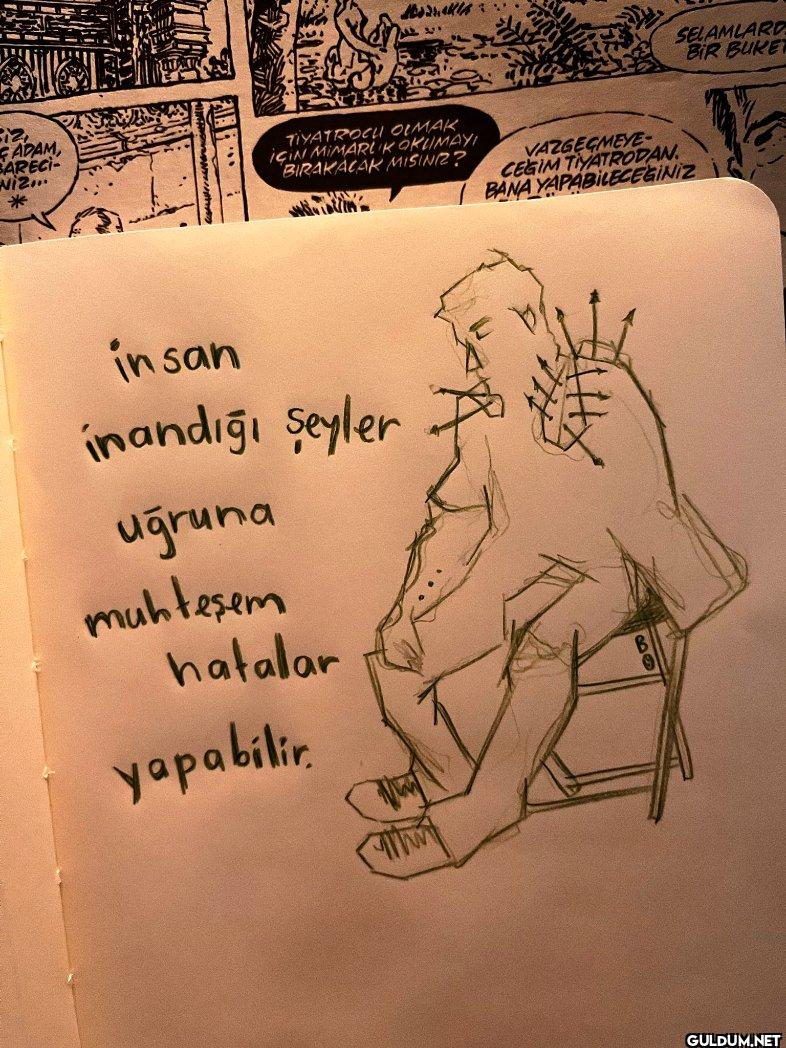 SELAMLARD
BİR BUKE
İZ,
Ç ADAM,
BARECİ-
NİZ...
*
TİYATROCU OLMAK
İÇİN MİMARLIK OKUMAYI
BIRAKACAK MISINIZ?
VAZGEÇMEYE-
CEĞİM TİYATRODAN.
BANA YAPABİLECEĞİNİZ
insan
inandığı şeyler
uğruna
muhteşem
hatalar
yapabilir.
B
GULDUM.NET